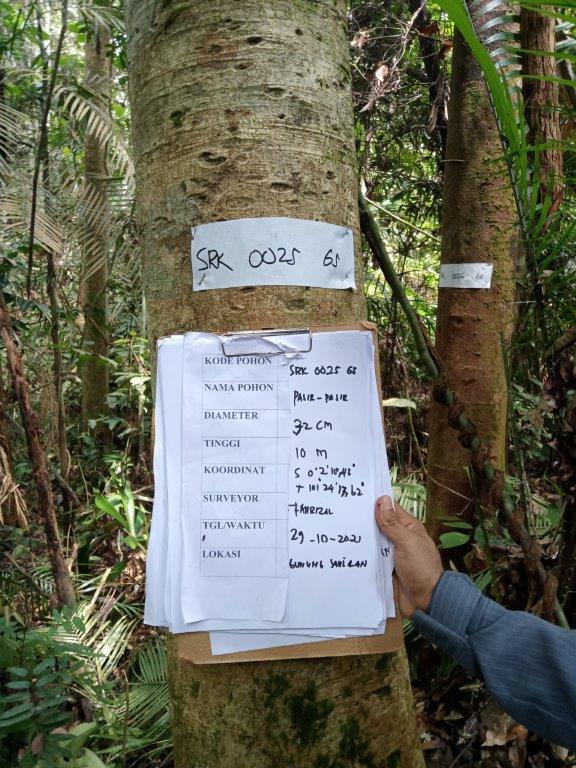 SRK 0025 GS
0026 GS
KODE POHON SRK 0025 GS
NAMA POHON PASIR-PASIR
DIAMETER 32 CM
TINGGI 10 M
KOORDINAT S 0°2'18,48"
T 101°24'13,62"
SURVEYOR TAHRIZAL
TGL/WAKTU 29-10-2021
LOKASI GUNUNG SAHILAN